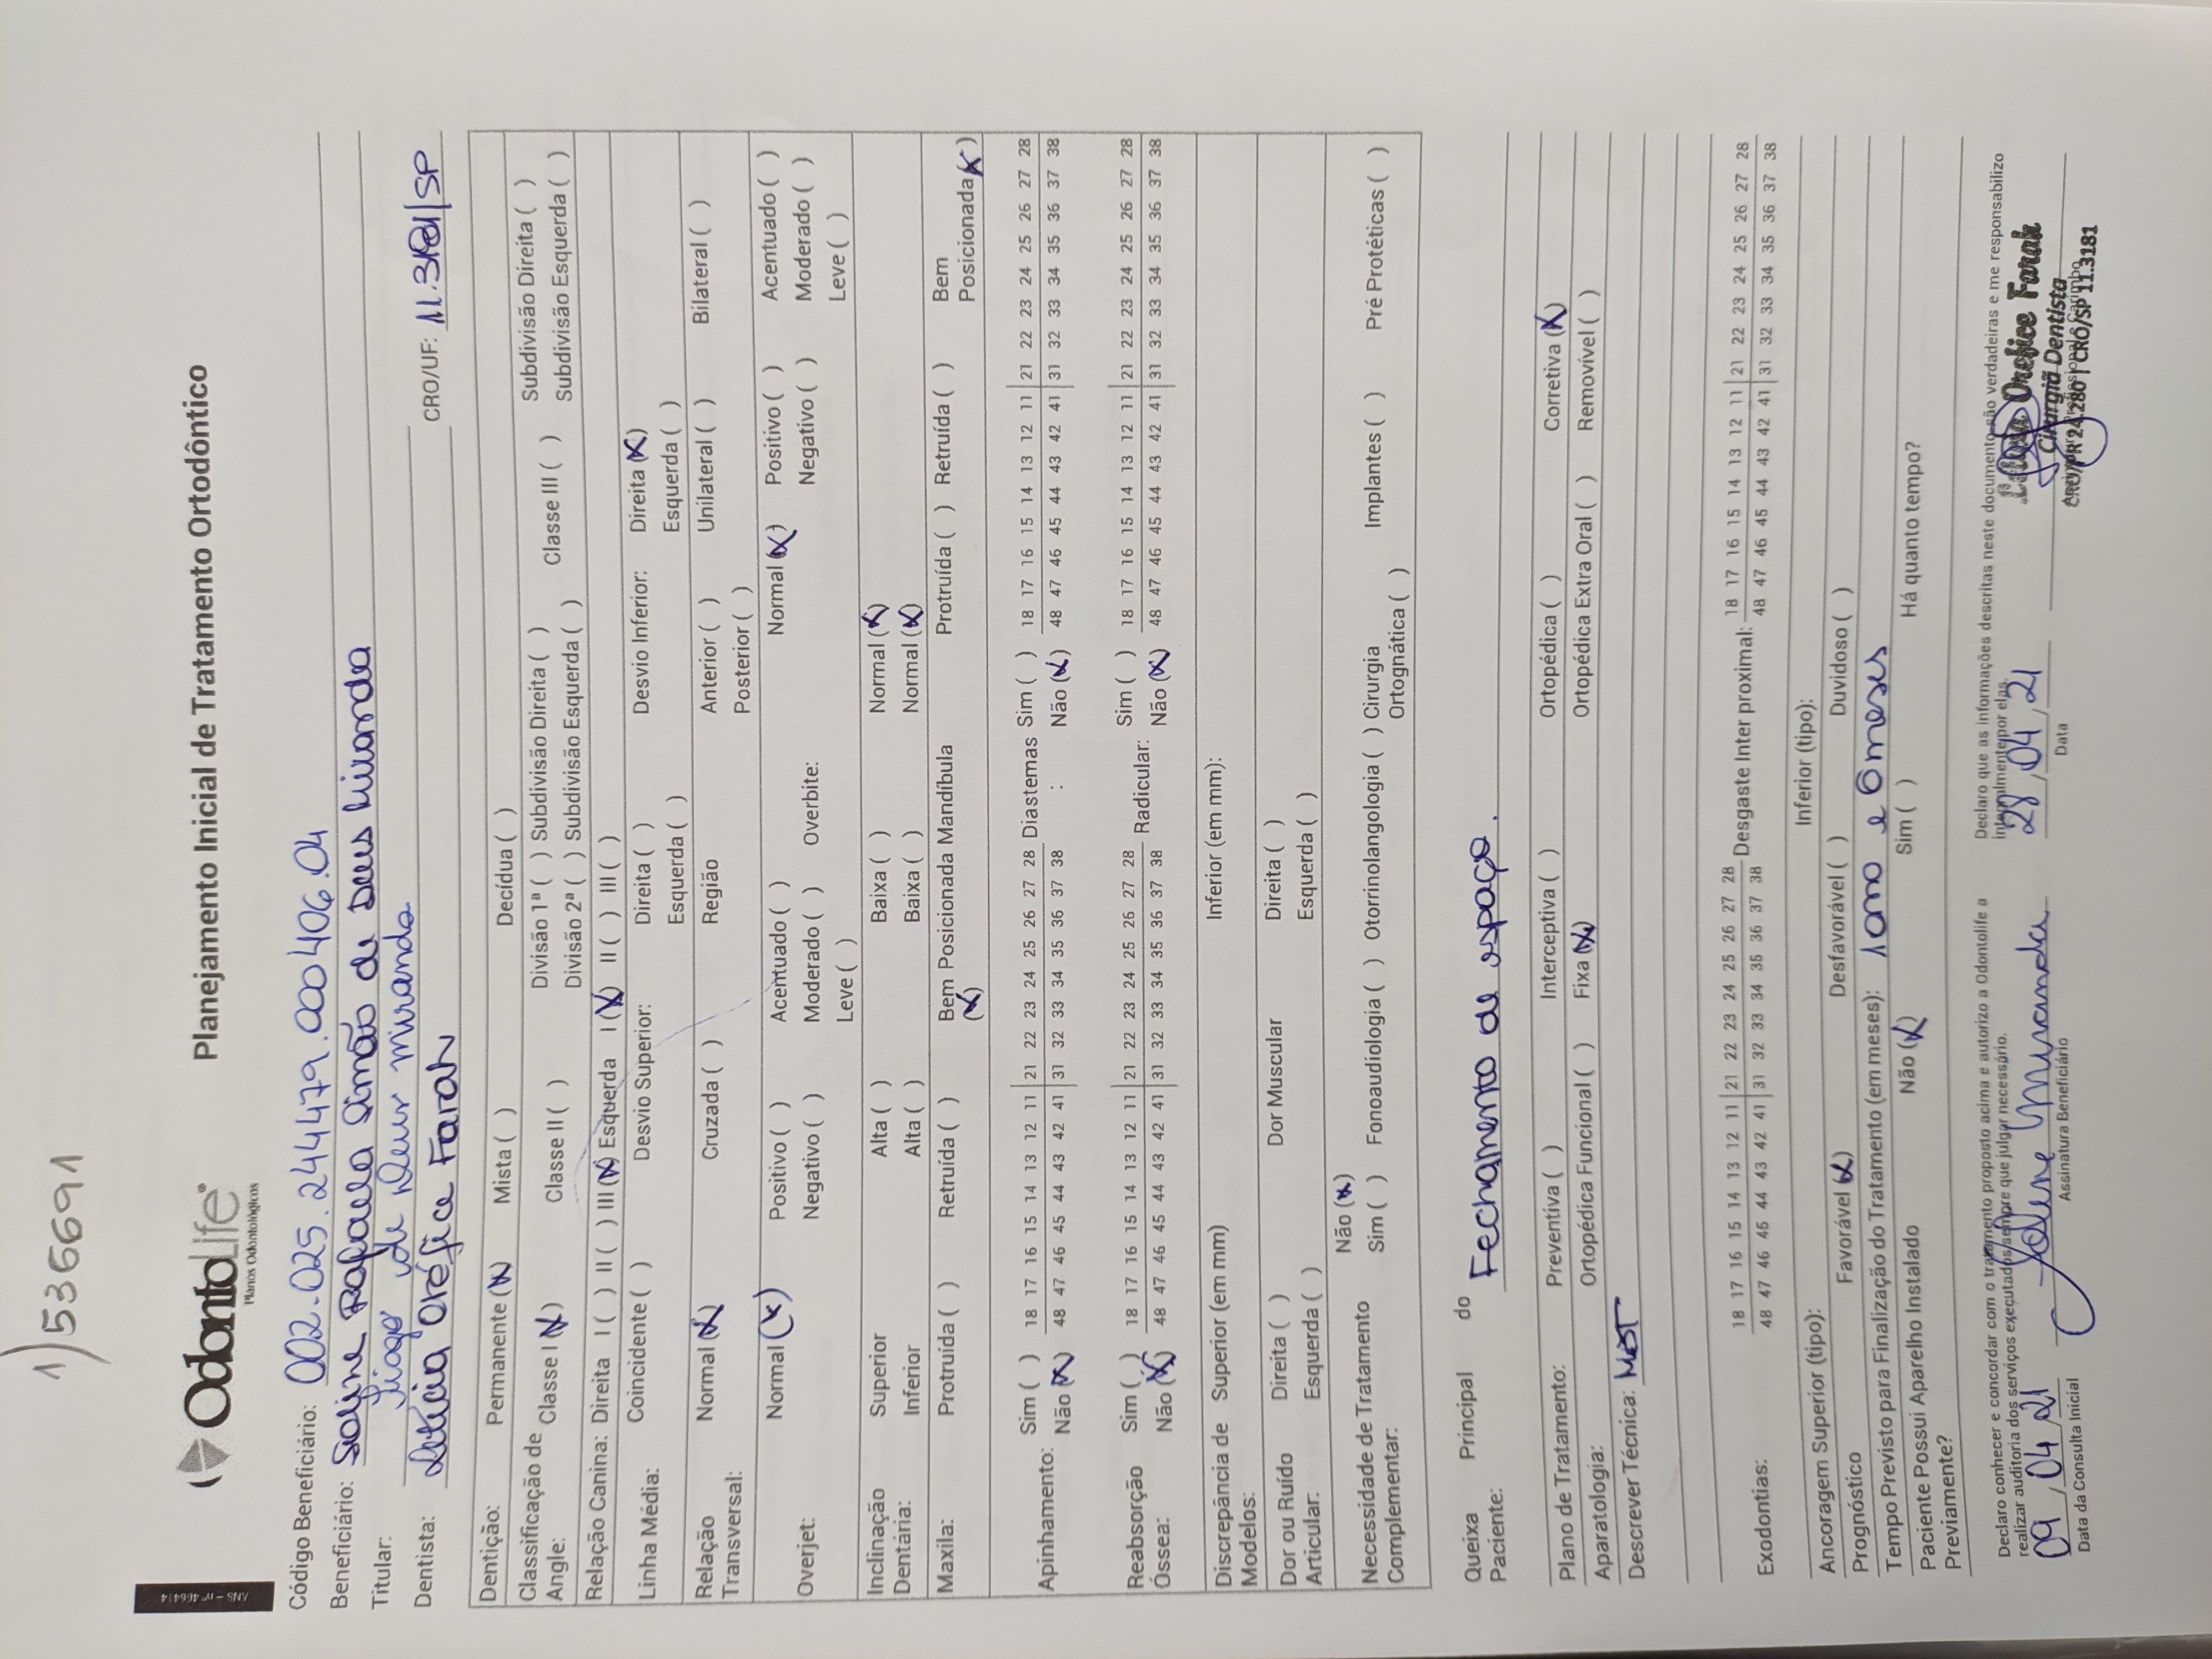 1) 5365691
ANS - nº 406414
OdontoLife
Planos Odontológicos
Planejamento Inicial de Tratamento Ortodôntico
Código Beneficiário: 002.025.244479.000406.04
Beneficiário: Rafaela Simão de Deus Miranda
Titular: Tiago de Deus Miranda
Dentista: Letícia Oréfice Farah CRO/UF: 11.3181/SP
Dentição: Permanente (X) Mista ( ) Decídua ( )
Classificação de Angle: Classe I (X) Classe II ( ) Divisão 1ª ( ) Subdivisão Direita ( ) Classe III ( ) Subdivisão Direita ( )
Divisão 2ª ( ) Subdivisão Esquerda ( ) Subdivisão Esquerda ( )
Relação Canina: Direita I ( ) II ( ) III (X) Esquerda I (X) II ( ) III ( )
Linha Média: Coincidente ( ) Desvio Superior: Direita ( ) Desvio Inferior: Direita (X)
Esquerda ( ) Esquerda ( )
Relação Transversal: Normal (X) Cruzada ( ) Região Anterior ( ) Unilateral ( ) Bilateral ( )
Posterior ( )
Overjet: Normal (X) Positivo ( ) Acentuado ( ) Overbite: Normal (X) Positivo ( ) Acentuado ( )
Negativo ( ) Moderado ( ) Negativo ( ) Moderado ( )
Leve ( ) Leve ( )
Inclinação Dentária: Superior Alta ( ) Baixa ( ) Normal (X)
Inferior Alta ( ) Baixa ( ) Normal (X)
Maxila: Protruída ( ) Retruída ( ) Bem Posicionada (X) Mandíbula Protruída ( ) Retruída ( ) Bem Posicionada (X)
Apinhamento: Sim ( ) 18 17 16 15 14 13 12 11 | 21 22 23 24 25 26 27 28 Diastemas : Sim ( ) 18 17 16 15 14 13 12 11 | 21 22 23 24 25 26 27 28
Não (X) 48 47 46 45 44 43 42 41 | 31 32 33 34 35 36 37 38 Não (X) 48 47 46 45 44 43 42 41 | 31 32 33 34 35 36 37 38
Reabsorção Óssea: Sim ( ) 18 17 16 15 14 13 12 11 | 21 22 23 24 25 26 27 28 Radicular: Sim ( ) 18 17 16 15 14 13 12 11 | 21 22 23 24 25 26 27 28
Não (X) 48 47 46 45 44 43 42 41 | 31 32 33 34 35 36 37 38 Não (X) 48 47 46 45 44 43 42 41 | 31 32 33 34 35 36 37 38
Discrepância de Modelos: Superior (em mm) Inferior (em mm):
Dor ou Ruído Articular: Direita ( ) Dor Muscular Direita ( )
Esquerda ( ) Esquerda ( )
Necessidade de Tratamento Complementar: Não (X)
Sim ( ) Fonoaudiologia ( ) Otorrinolangologia ( ) Cirurgia Ortognática ( ) Implantes ( ) Pré Protéticas ( )
Queixa Principal do Paciente: Fechamento de espaço.
Plano de Tratamento: Preventiva ( ) Interceptiva ( ) Ortopédica ( ) Corretiva (X)
Aparatologia: Ortopédica Funcional ( ) Fixa (X) Ortopédica Extra Oral ( ) Removível ( )
Descrever Técnica:
Exodontias: 18 17 16 15 14 13 12 11 | 21 22 23 24 25 26 27 28 Desgaste Inter proximal: 18 17 16 15 14 13 12 11 | 21 22 23 24 25 26 27 28
48 47 46 45 44 43 42 41 | 31 32 33 34 35 36 37 38 48 47 46 45 44 43 42 41 | 31 32 33 34 35 36 37 38
Ancoragem Superior (tipo): Inferior (tipo):
Prognóstico Favorável (X) Desfavorável ( ) Duvidoso ( )
Tempo Previsto para Finalização do Tratamento (em meses): 1 ano e 6 meses
Paciente Possui Aparelho Instalado Previamente? Não (X) Sim ( ) Há quanto tempo?
Declaro conhecer e concordar com o tratamento proposto acima e autorizo a Odontolife a
realizar auditoria dos serviços executados sempre que julgar necessário.
09/04/21
Data da Consulta Inicial
Miranda
Assinatura Beneficiário
Declaro que as informações descritas neste documento são verdadeiras e me responsabilizo
integralmente por elas.
28/04/21
Data
Orefice Farah
Cirurgiã Dentista
CRO/PR 24.280 | CRO/SP 11.3181